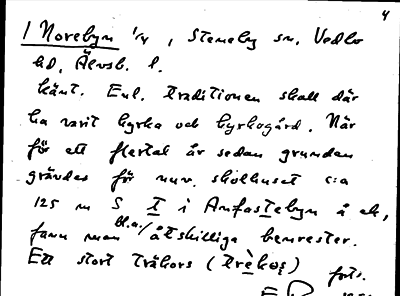 4
/ Norebyn 1/4, Steneby sn, Vedbo
hd, Älvsb. l.
känt. Enl. traditionen skall där
ha varit kyrka och kyrkogård. När
för ett flertal år sedan grunden
grävdes för nuv. skolhuset c:a
125 m S t i Anfastebyn å ek,
fann man bl.a./ åtskilliga benrester.
Ett stort träkors (trèkọs)
forts.